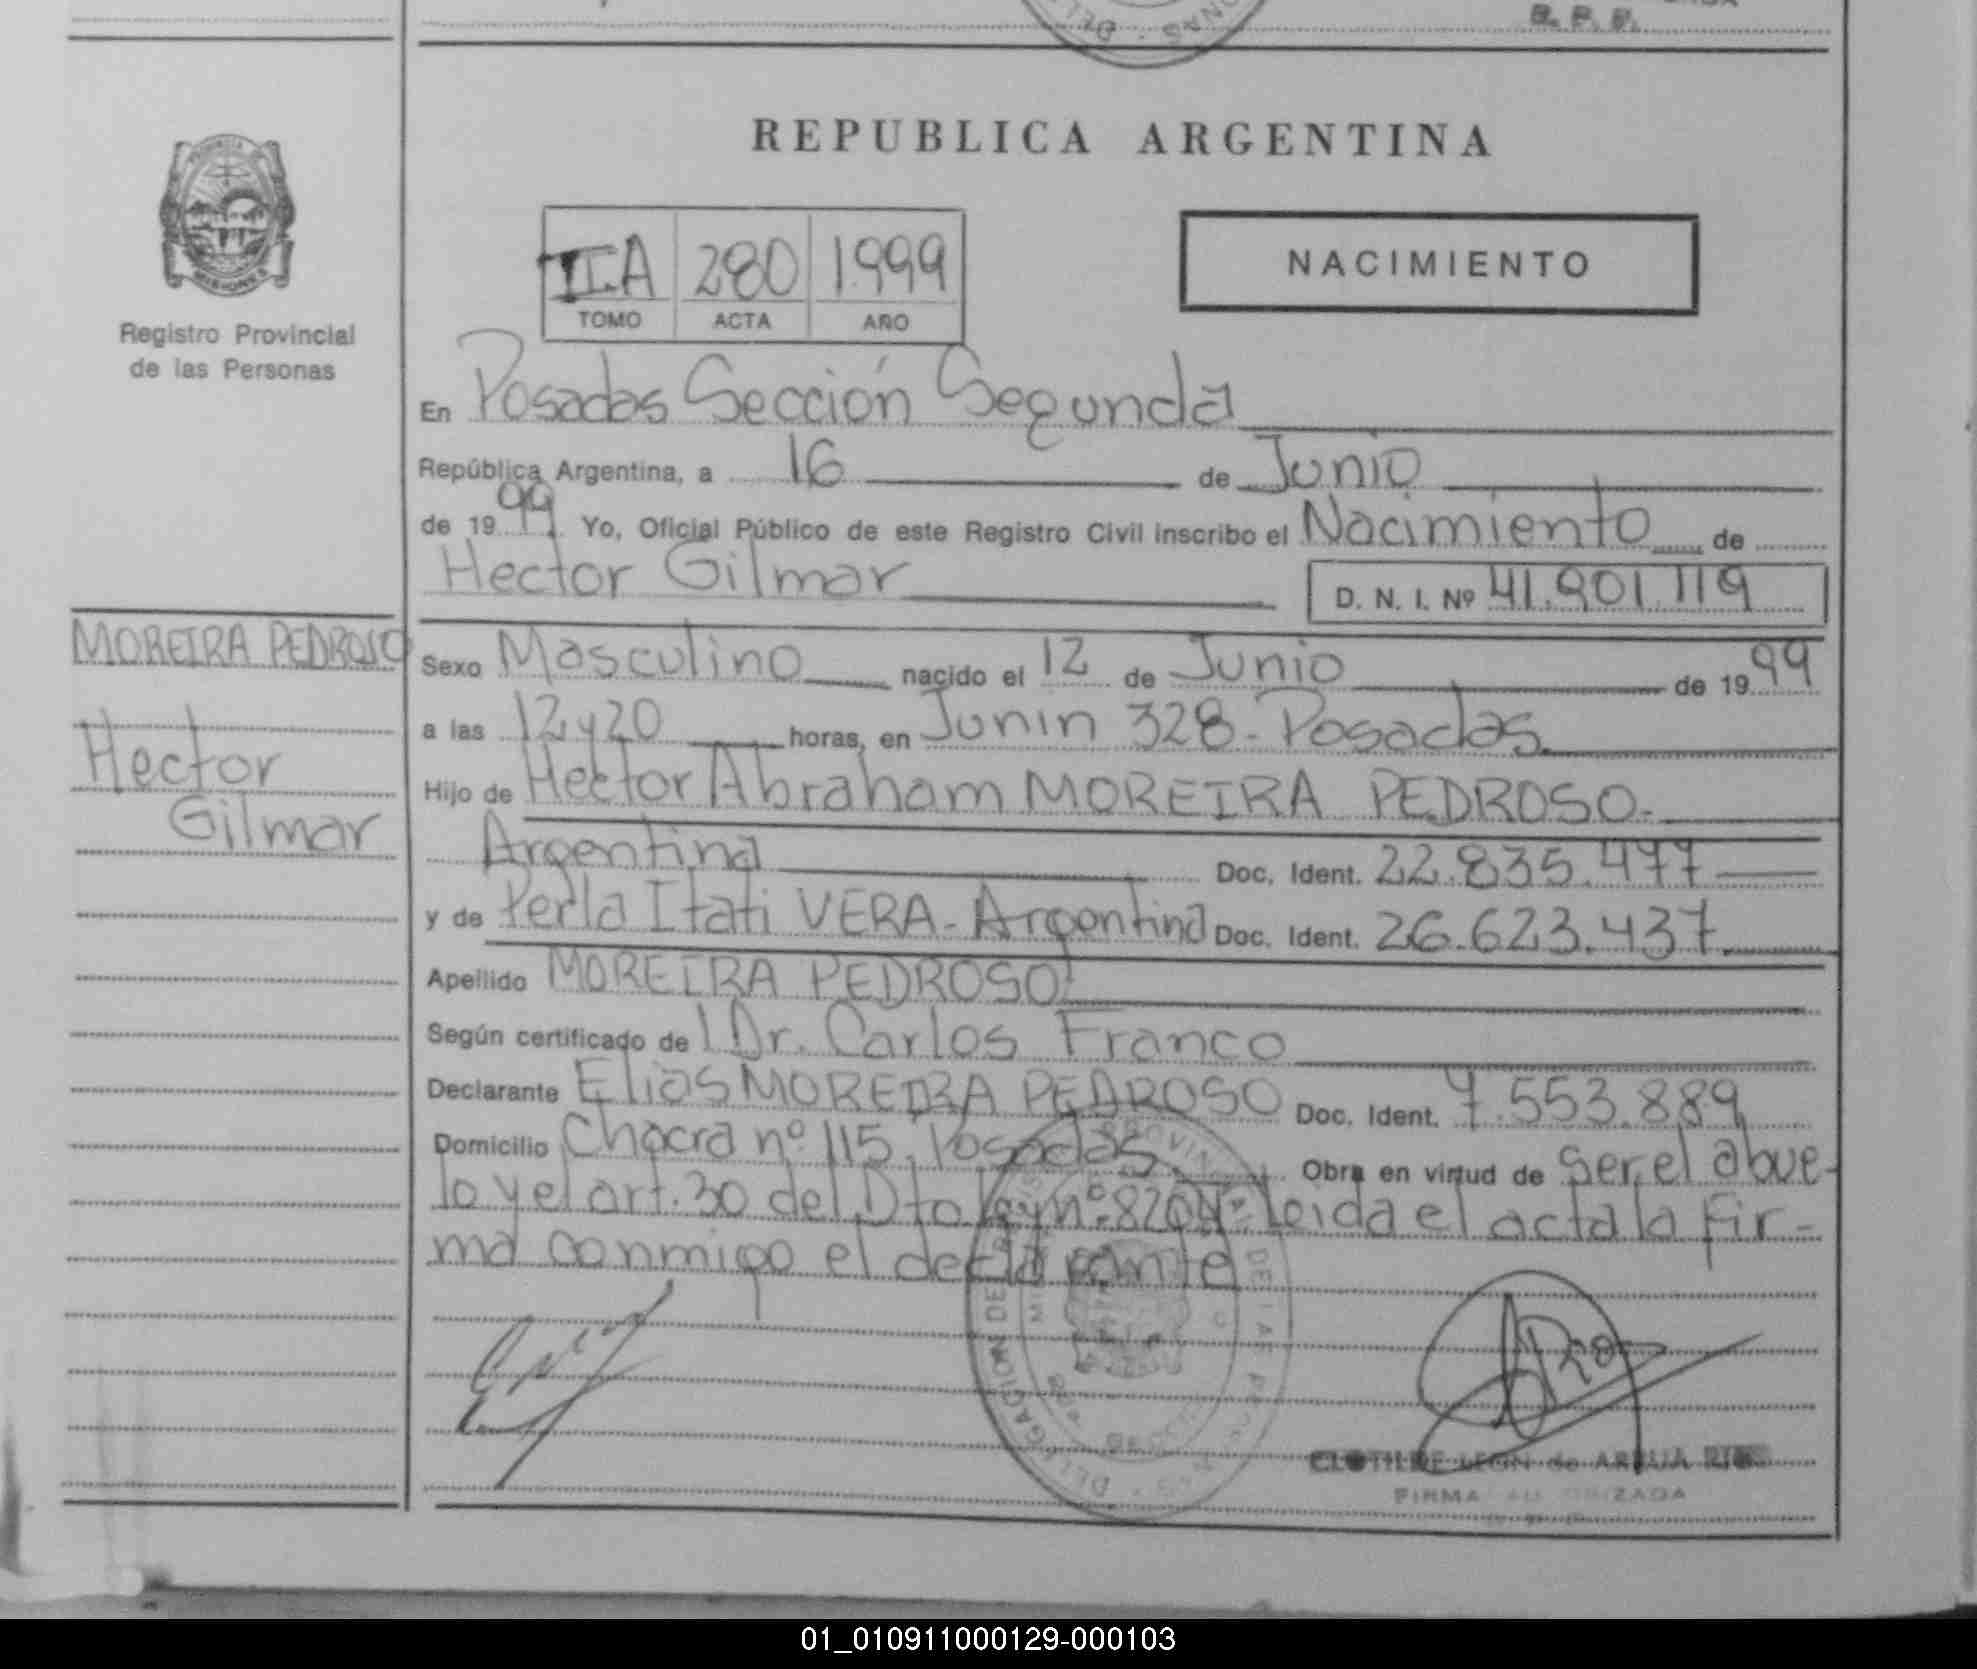 R. P. P.
REPUBLICA ARGENTINA
Registro Provincial
de las Personas
II.A 280 1.999
TOMO ACTA AÑO
NACIMIENTO
En Posadas Sección Segunda
República Argentina, a 16 de Junio
de 19 99 Yo, Oficial Público de este Registro Civil inscribo el Nacimiento de
Hector Gilmar D. N. I. Nº 41.901.119
MOREIRA PEDROSO
Hector
Gilmar
Sexo Masculino nacido el 12 de Junio de 19 99
a las 12 y 20 horas, en Junin 328 - Posadas.
Hijo de Hector Abraham MOREIRA PEDROSO.
Argentina Doc. Ident. 22.835.477
y de Perla Itati VERA - Argentina Doc. Ident. 26.623.437.
Apellido MOREIRA PEDROSO
Según certificado de Dr. Carlos Franco
Declarante Elias MOREIRA PEDROSO Doc. Ident. 7.553.889
Domicilio Chacra nº 115. Posadas. Obra en virtud de ser el abue-
lo y el art. 30 del Dto ley nº 8204 leida el acta la fir-
ma conmigo el declarante
CLOTILDE LEON de ARRUA
FIRMA AUTORIZADA
01_010911000129-000103